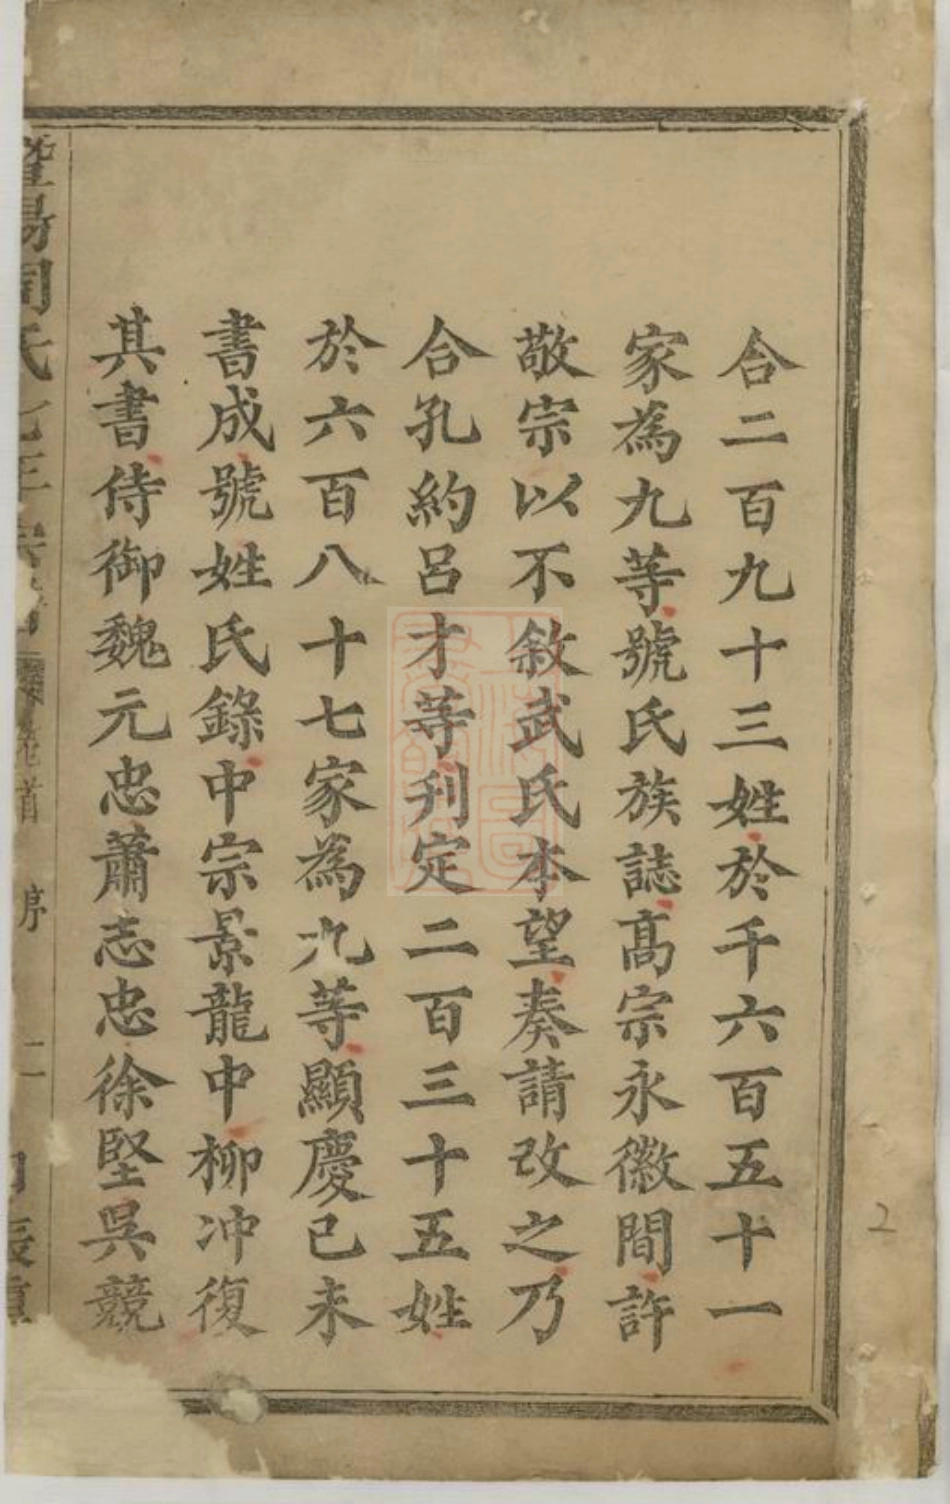 合二百九十三姓於千六百五十一
家為九等號氏族誌高宗永徽間許
敬宗以不敘武氏本望奏請改之乃
合孔約呂才等刋定二百三十五姓
於六百八十七家為九等顯慶已未
書成號姓氏錄中宗景龍中柳冲復
其書侍御魏元忠蕭志忠徐堅吳競
暨陽周氏 序 二
2